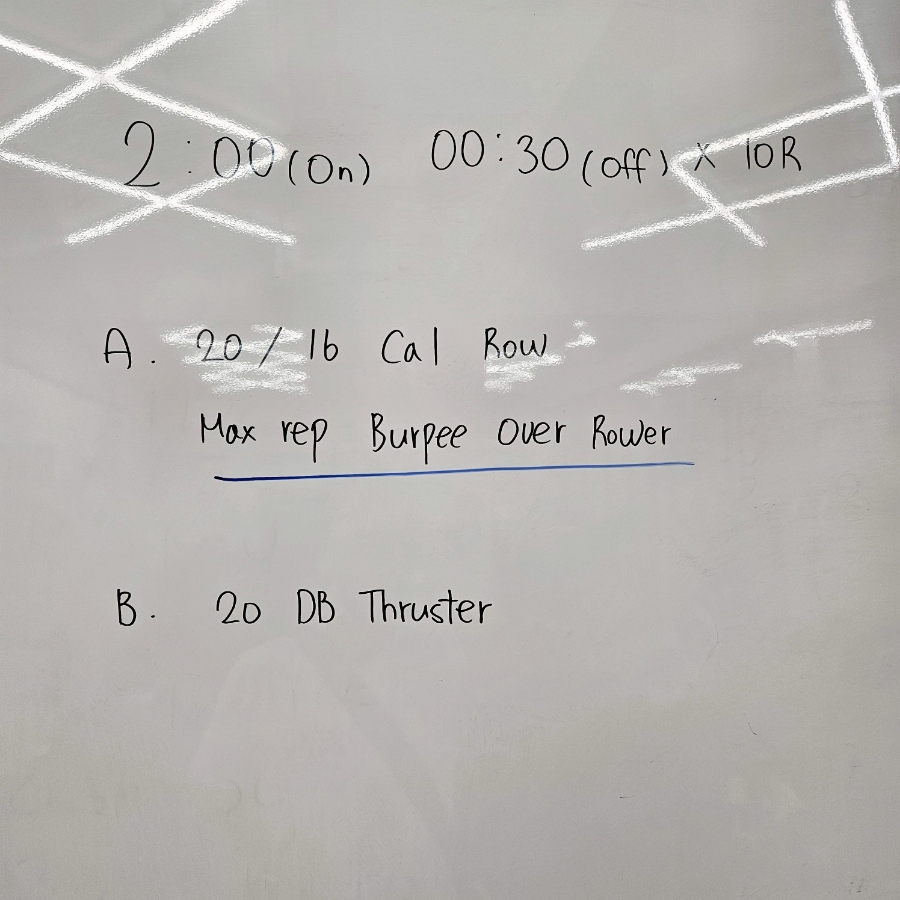 2:00 (On) 00:30 (off) x 10R
A. 20 / 16 Cal Row
Max rep Burpee Over Rower
B. 20 DB Thruster